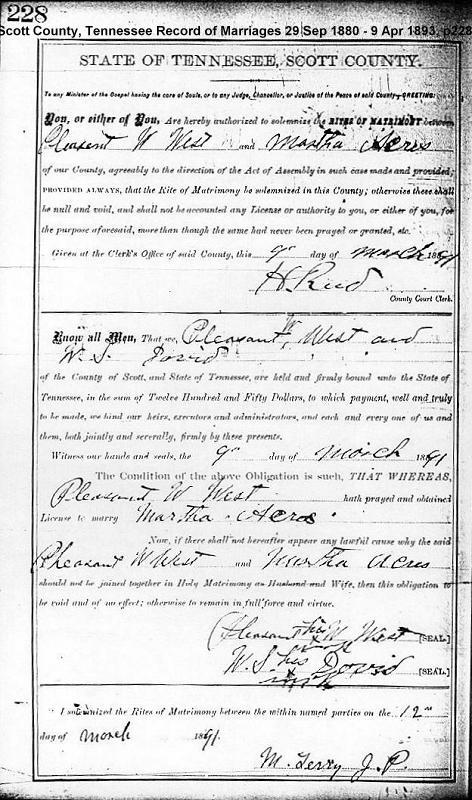 228
Scott County, Tennessee Record of Marriages 29 Sep 1880 - 9 Apr 1893, p228
STATE OF TENNESSEE, SCOTT COUNTY.
To any Minister of the Gospel having the care of Souls, or to any Judge, Chancellor, or Justice of the Peace of said County—GREETING:
You, or either of You, Are hereby authorized to solemnize the RITES OF MATRIMONY between
Pleasant W West and Martha Acres
of our County, agreeably to the direction of the Act of Assembly in such case made and provided;
PROVIDED ALWAYS, that the Rite of Matrimony be solemnized in this County; otherwise these shall
be null and void, and shall not be accounted any License or authority to you, or either of you, for
the purpose aforesaid, more than though the same had never been prayed or granted, etc.
Given at the Clerk's Office of said County, this 9" day of March 1891
H. Reed
County Court Clerk.
Know all Men, That we, Pleasant W West and
W. S. Dovid
of the County of Scott, and State of Tennessee, are held and firmly bound unto the State of
Tennessee, in the sum of Twelve Hundred and Fifty Dollars, to which payment, well and truly
to be made, we bind our heirs, executors and administrators, and each and every one of us and
them, both jointly and severally, firmly by these presents.
Witness our hands and seals, the 9" day of March 1891
The Condition of the above Obligation is such, THAT WHEREAS,
Pleasant W West hath prayed and obtained
License to marry Martha Acres
Now, if there shall not hereafter appear any lawful cause why the said
Pheasant W West and Martha Acres
should not be joined together in Holy Matrimony as Husband and Wife, then this obligation to
be void and of no effect; otherwise to remain in full force and virtue.
Pleasant his W West [SEAL]
W. S. his Dovid [SEAL]
mark
I solemnized the Rites of Matrimony between the within named parties on the 12"
day of March 1891.
M. Terry J. P.